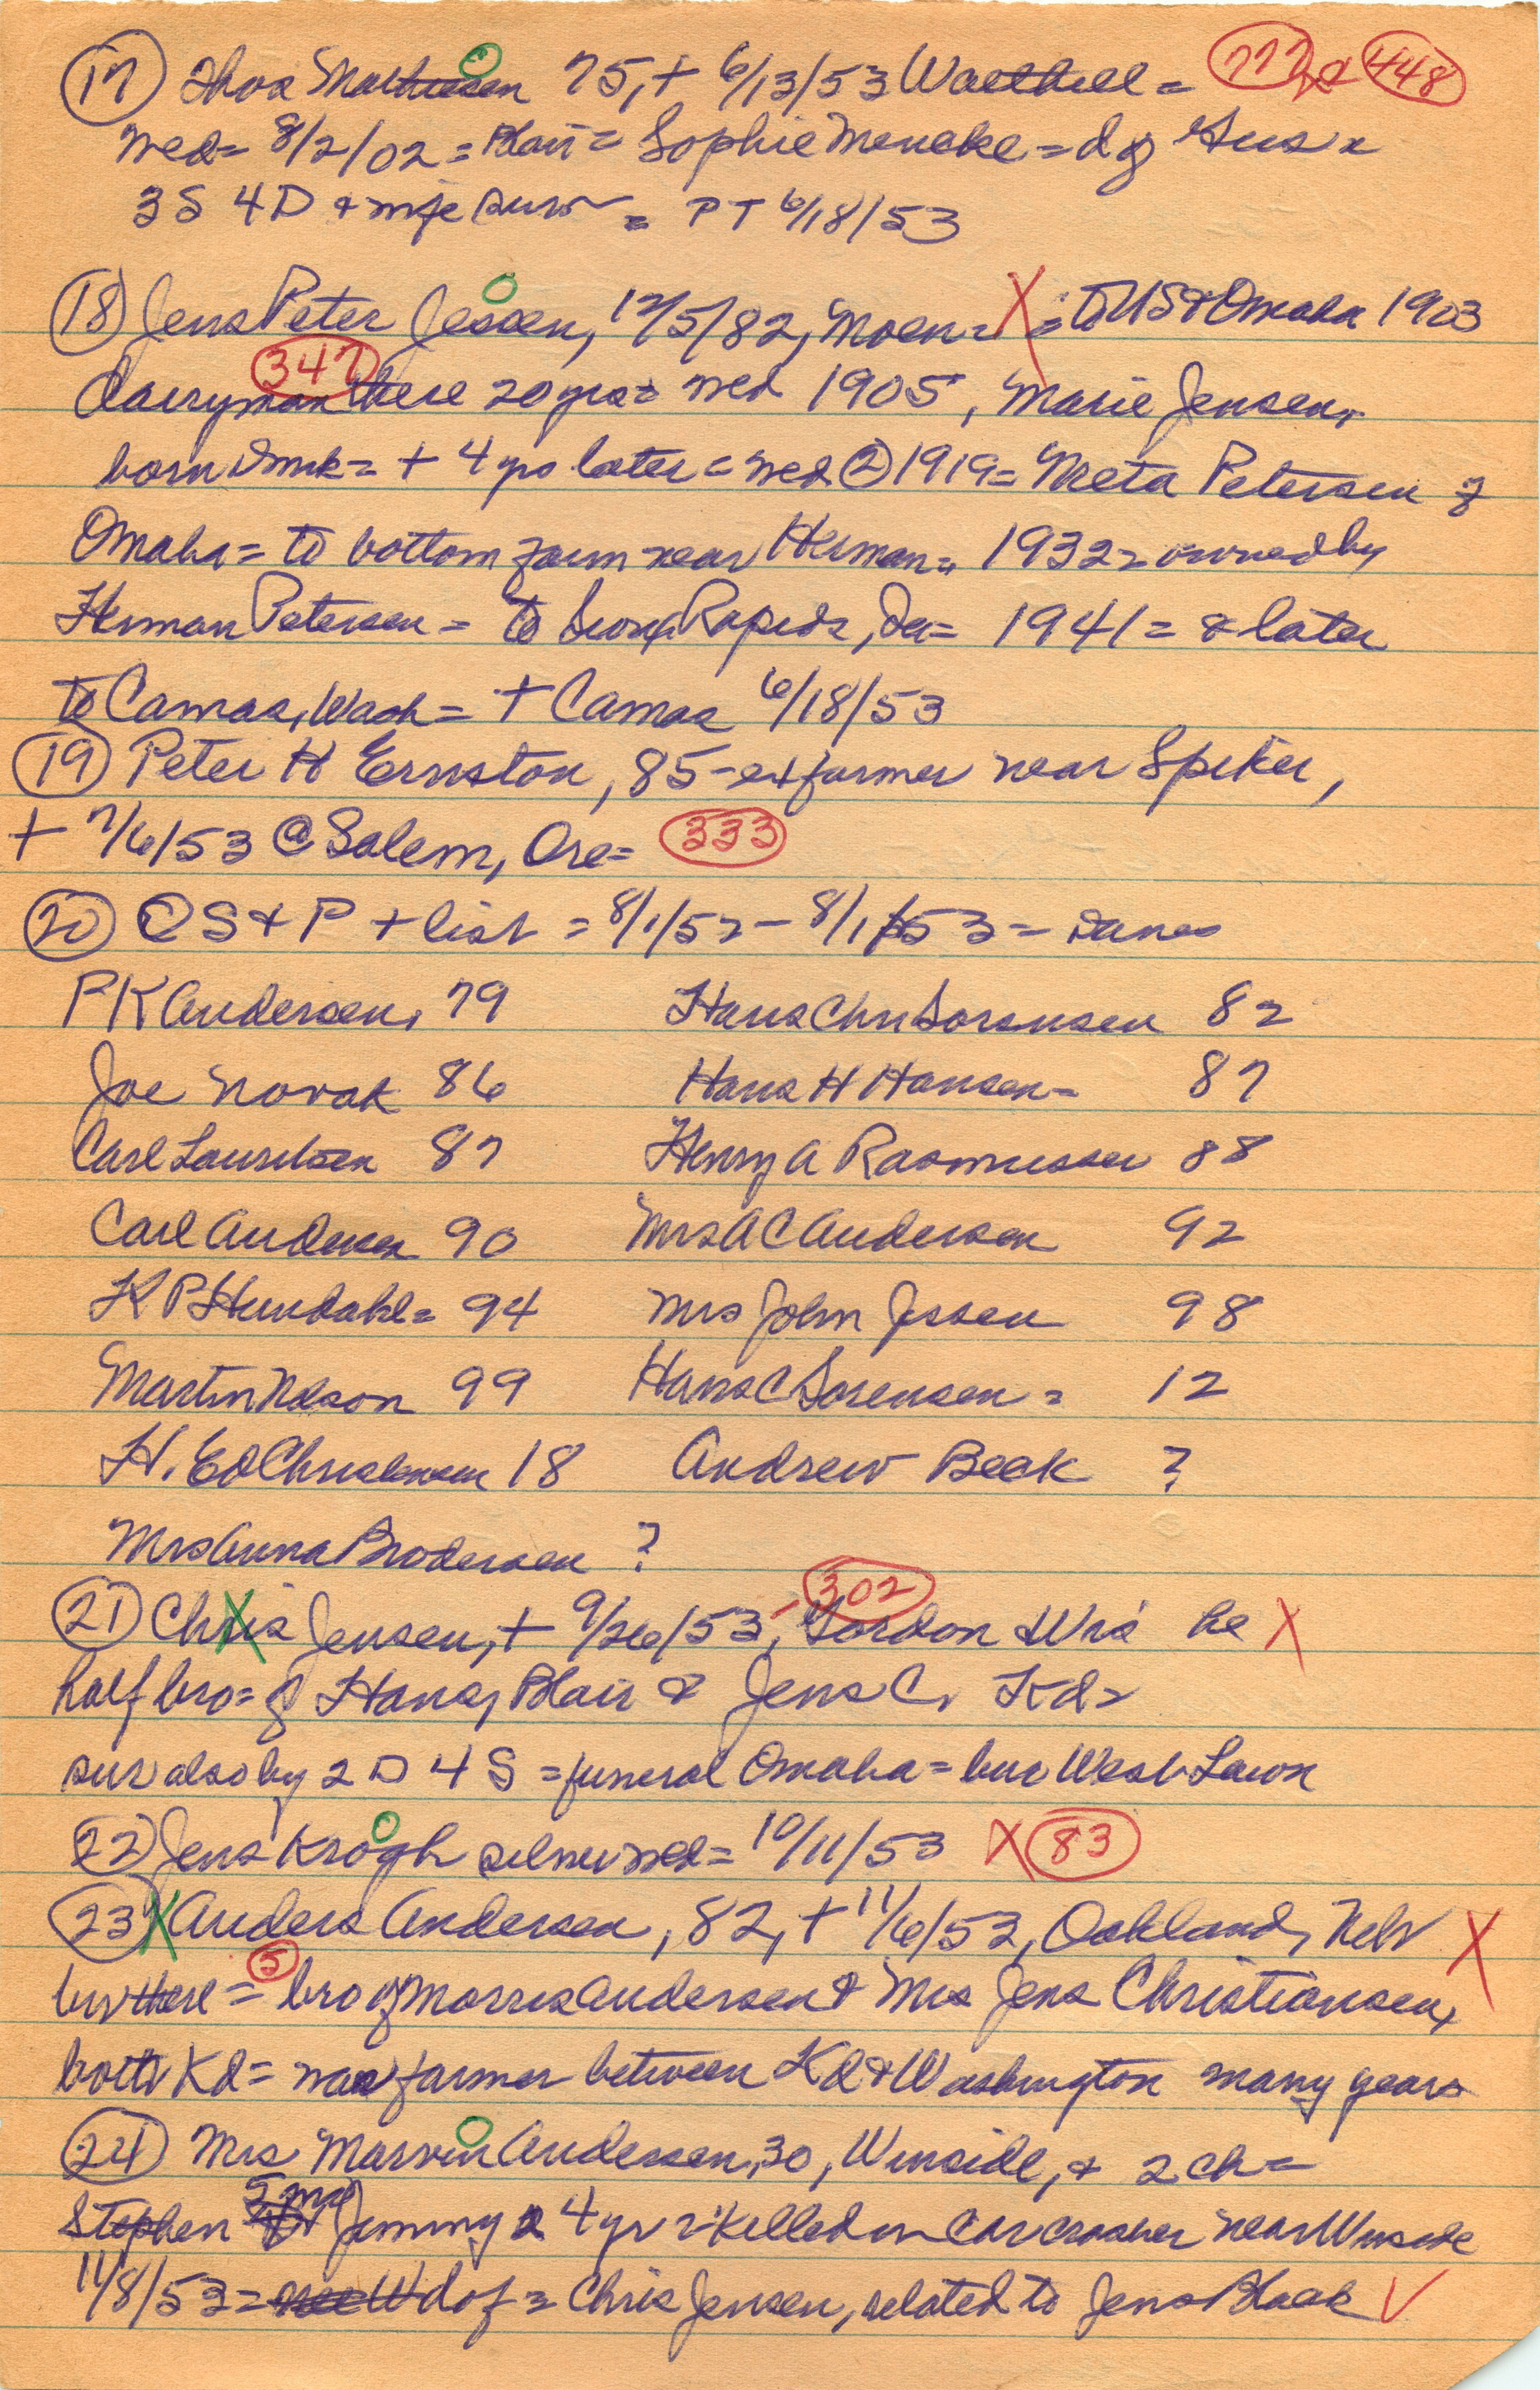 (17) Thos Mathiesen 75, + 6/13/53 Walthill = 777 & 448
wed = 8/2/02 = Blair = Sophie Meneke = d of Gus x
3 S 4 D + wife surv = PT 6/18/53
(18) Jens Peter Jessen, 12/5/82, Moen = X = to US & Omaha 1903
347
dairyman there 20 yrs = wed 1905, Marie Jensen,
born Dmk = + 4 yrs later = wed (2) 1919 = Meta Petersen of
Omaha = to bottom farm near Herman = 1932 = owned by
Herman Petersen = to Sioux Rapids, Ia = 1941 = & later
to Camas, Wash = + Camas 6/18/53
(19) Peter H Ernston, 85 - exfarmer near Spiker,
+ 7/6/53 @ Salem, Ore = 333
(20) OS & P + list = 8/1/52 - 8/1/53 = Danes
PK Andersen, 79 Hans Chr Sorensen 82
Joe Novak 86 Hans H Hansen = 87
Carl Lauritsen 87 Henry A Rasmussen 88
Carl Andersen 90 Mrs A C Andersen 92
K P Hundahl = 94 Mrs John Jessen 98
Martin Nelson 99 Hans C Sorensen = 12
H. Ed Christensen 18 Andrew Beck ?
Mrs Anna Brodersen ?
302
(21) Chris Jensen, + 9/26/53, Gordon Wis he X
half bro = of Hans, Blair & Jens C, Kd =
surv also by 2 D 4 S = funeral Omaha = bur West Lawn
(22) Jens Krogh silver wed = 10/11/53 X 83
(23) X Anders Andersen, 82, + 11/6/53, Oakland, Nebr X
5
bur there = bro of Morris Andersen & Mrs Jens Christiansen,
both Kd = was farmer between Kd & Washington many years
(24) Mrs Marvin Andersen, 30, Winside, & 2 ch =
5 mo
Stephen Jimmy 4 yr = killed in car crash near Winside
11/8/53 = nee W d of = Chris Jensen, related to Jens Blaek ✓